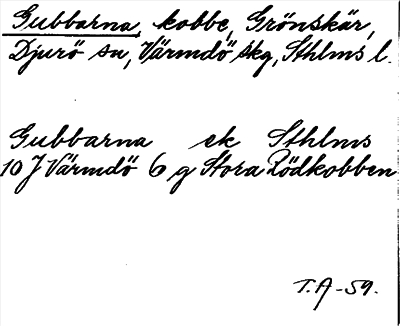 Gubbarna, kobbe, Grönskär,
Djurö sn, Värmdö skg, Sthlms l.
Gubbarna ek Sthlms
10 J Värmdö 6 g Stora Rödkobben
T.A-59.